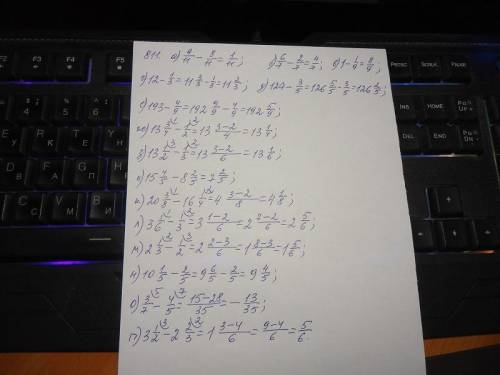 811. а) 9/11 - 8/11 = 1/11; б) 6/7 - 2/7 = 4/7; в) 1 - 1/9 = 8/9;
г) 12 - 1/3 = 11 3/3 - 1/3 = 11 2/3; д) 127 - 3/5 = 126 5/5 - 3/5 = 126 2/5;
е) 193 - 4/9 = 192 9/9 - 4/9 = 192 5/9;
ж) 13 3/4 - 1/2 = 13 3-2/4 = 13 1/4;
з) 13 1/2 - 1/3 = 13 3-2/6 = 13 1/6;
и) 15 4/5 - 8 2/5 = 7 2/5;
к) 20 3/8 - 16 1/4 = 4 3-2/8 = 4 1/8;
л) 3 1/6 - 1/3 = 3 1-2/6 = 2 7-2/6 = 2 5/6;
м) 2 1/3 - 1/2 = 2 2-3/6 = 1 8-3/6 = 1 5/6;
н) 10 1/5 - 2/5 = 9 6/5 - 2/5 = 9 4/5;
о) 3/7 - 4/5 = 15-28/35 = - 13/35;
п) 3 1/2 - 2 2/3 = 1 3-4/6 = 9-4/6 = 5/6.